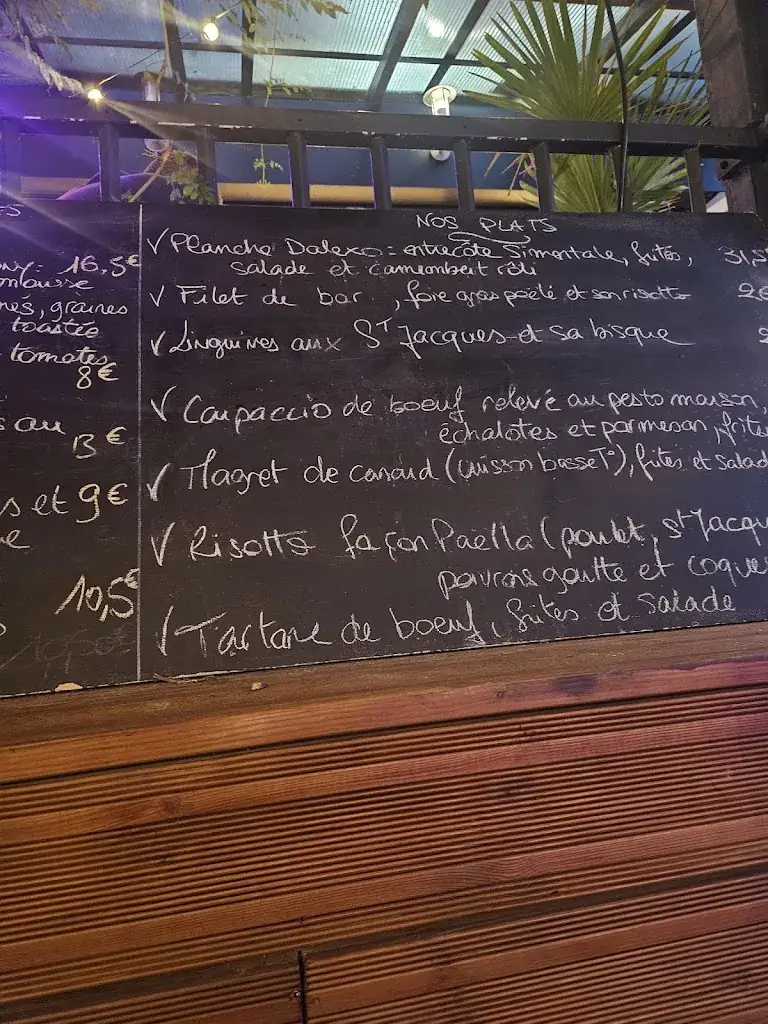 16,5€
mousse
graines
toastée
tomates
8€
au
13€
s et 9€
10,5€
NOS PLATS
√ Planche Dalexo = entrecôte Simentale, frites, 31,5
salade et camembert rôti
√ Filet de bar, foie gras poêlé et son risotto
√ Linguines aux ST Jacques et sa bisque
√ Carpaccio de boeuf relevé au pesto maison,
échalotes et parmesan, frites
√ Magret de canard (cuisson basse T°), frites et salad
√ Risotto façon Paëlla (poulet, st Jacqu
poivrons goutte et coques
√ Tartare de boeuf, frites et salade